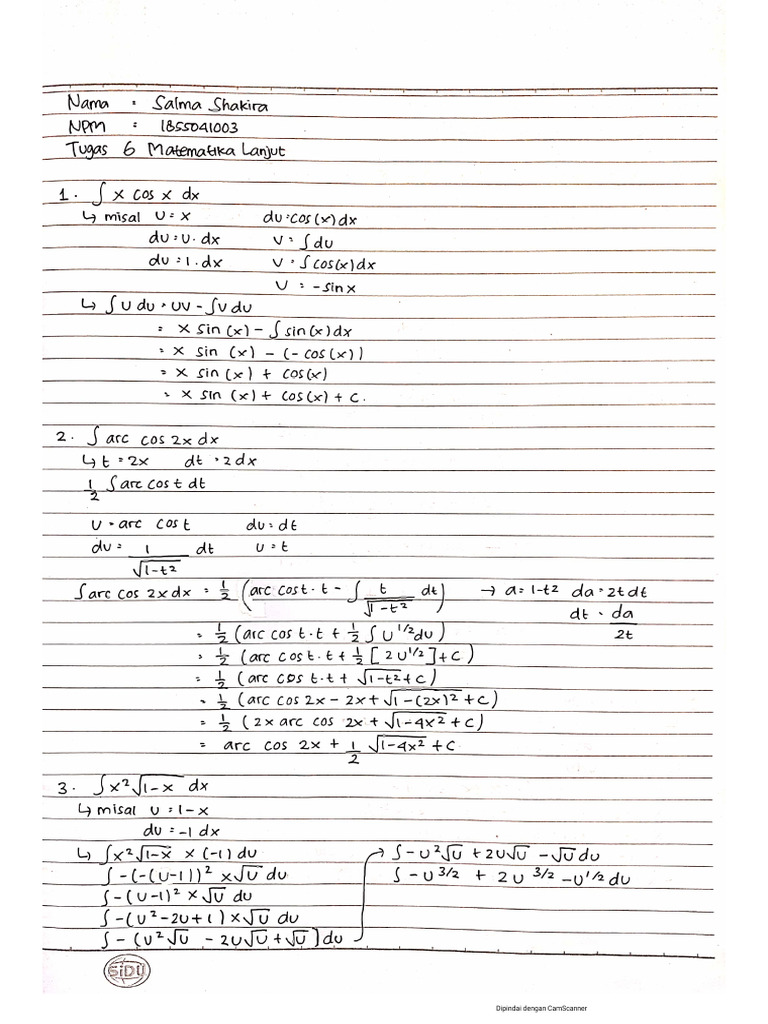 Nama : Salma Shakira
NPM : 1855041003
Tugas 6 Matematika Lanjut
1. ∫ x cos x dx
↳ misal U = x du = cos(x) dx
du = U. dx V = ∫ du
du = 1. dx V = ∫ cos(x) dx
U = -sin x
↳ ∫ U du = UV - ∫ V du
= x sin (x) - ∫ sin (x) dx
= x sin (x) - (- cos (x))
= x sin (x) + cos (x)
= x sin (x) + cos (x) + c.
2. ∫ arc cos 2x dx
↳ t = 2x dt = 2 dx
1/2 ∫ arc cos t dt
U = arc cos t du = dt
du = 1/√(1-t²) dt U = t
∫ arc cos 2x dx = 1/2 (arc cos t . t - ∫ t/√(1-t²) dt) → a = 1-t² da = 2t dt
dt = da/2t
= 1/2 (arc cos t . t + 1/2 ∫ U^1/2 du)
= 1/2 (arc cos t . t + 1/2 [2U^1/2] + c)
= 1/2 (arc cos t . t + √(1-t²) + c)
= 1/2 (arc cos 2x - 2x + √(1-(2x)²) + c)
= 1/2 (2x arc cos 2x + √(1-4x²) + c)
= arc cos 2x + 1/2 √(1-4x²) + c
3. ∫ x² √(1-x) dx
↳ misal U = 1-x
du = -1 dx
↳ ∫ x² √(1-x) x (-1) du
∫ -(-(U-1))² x √U du
∫ -(U-1)² x √U du
∫ -(U²-2U+1) x √U du
∫ -(U²√U - 2U√U + √U] du
→ ∫ -U²√U + 2U√U - √U du
∫ -U^3/2 + 2U^3/2 - U^1/2 du
SiDU
Dipindai dengan CamScanner